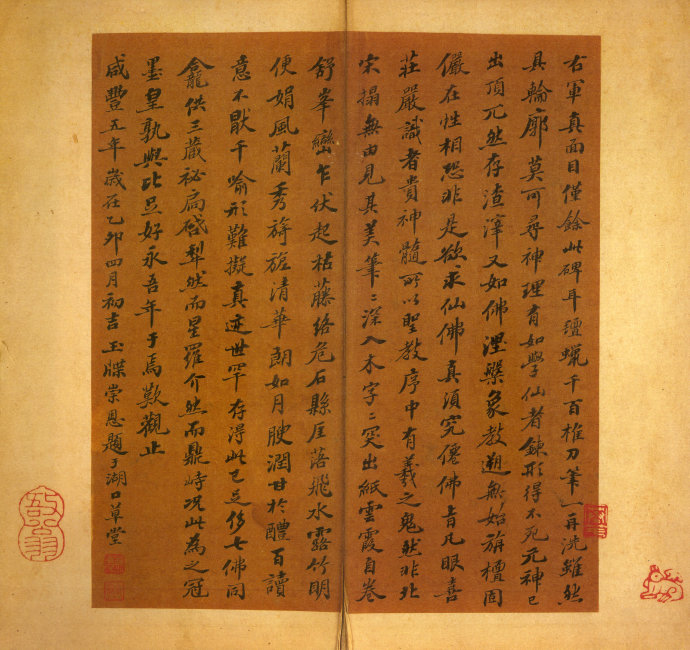 右軍真面目僅餘此碑耳氊蠟千百椎刀筆一再洗雖然
具輪廓莫可尋神理有如學仙者鍊形得不死元神已
出頂兀然存渣滓又如佛涅槃象教遡無始旃檀固
儼在性相恐非是欲求仙佛真須究僊佛旨凡眼喜
莊嚴識者貴神髓所以聖教序中有羲之鬼然非北
宋搨無由見其美筆二深入木字二突出紙雲霞自卷
舒峯巒乍伏起枯藤絡危石縣厓落飛水露竹明
便娟風蘭秀旖旎清華朗如月腴潤甘於醴百讀
意不猒千喻形難擬真迹世罕存得此已足侈七佛同
龕龕供三藏祕扃啟犁然而星羅介然而鼎峙况此為之冠
墨皇孰與比旦好永吾年于焉歎觀止
咸豐五年歲在乙卯四月初吉玉牒崇恩題于湖口草堂